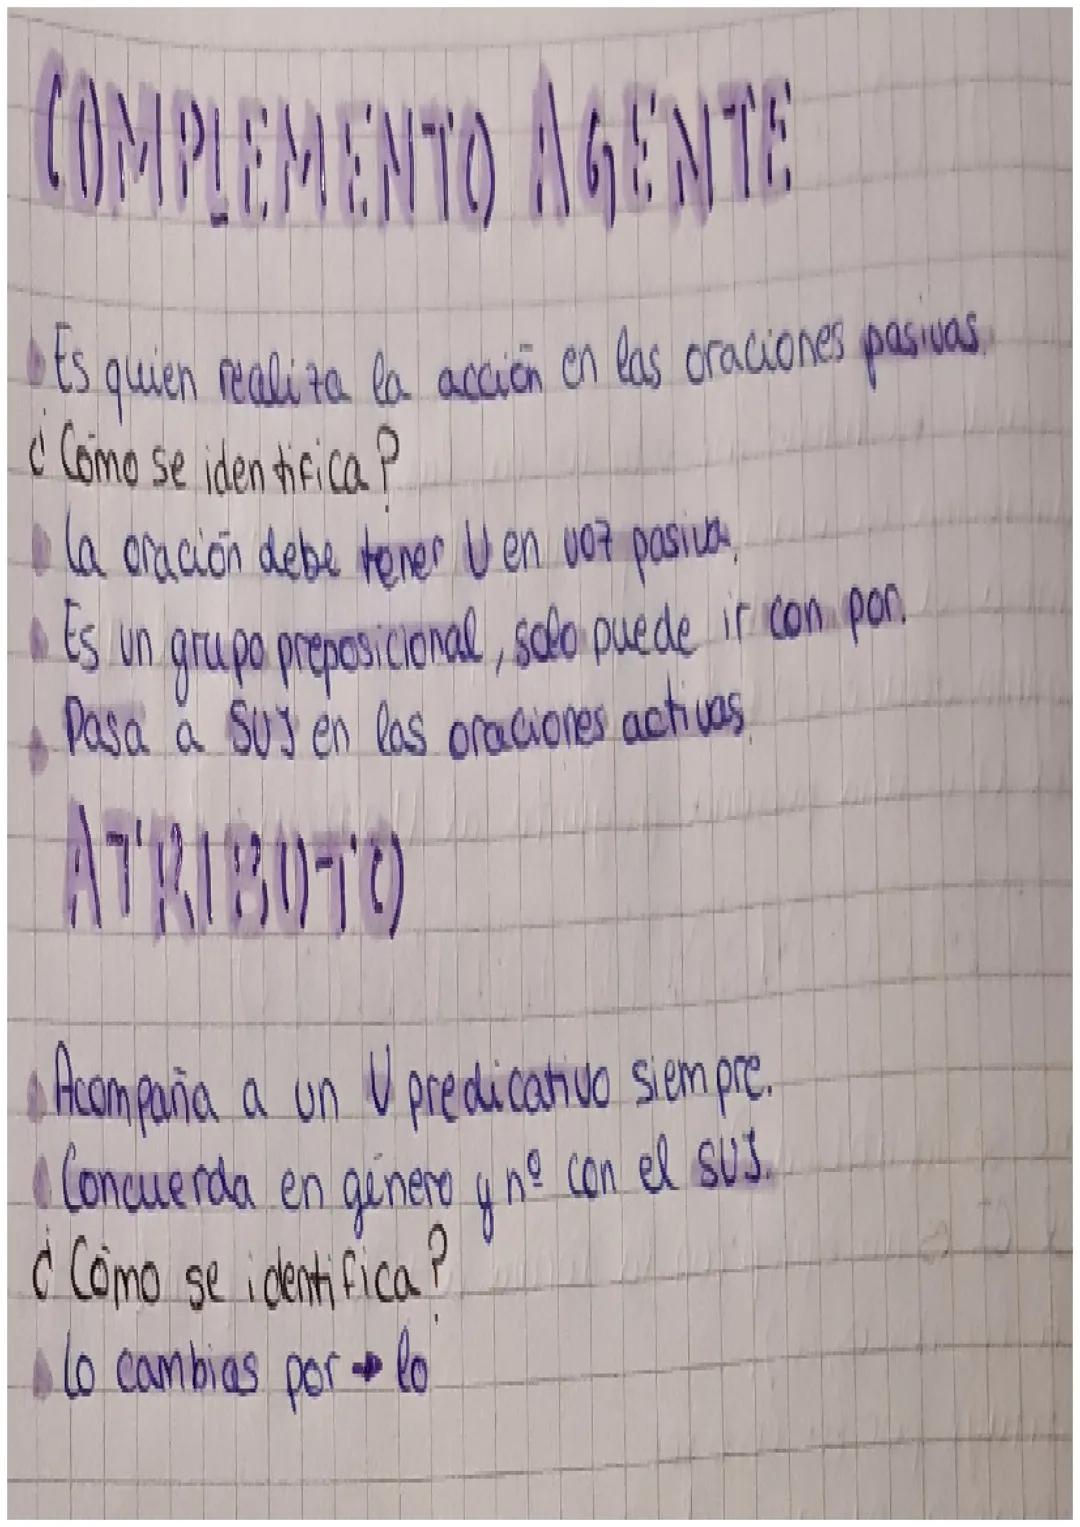 COMPLEMENTO AGENTE
Es quien realiza la acción en las oraciones pasivas.
¿Cómo se identifica?
La oración debe tener V en voz pasiva.
Es un grupo preposicional, solo puede ir con por.
Pasa a SUJ en las oraciones activas
ATRIBUTO
Acompaña a un V predicativo siempre.
Concuerda en género y nº con el SUJ.
¿Cómo se identifica?
Lo cambias por → lo